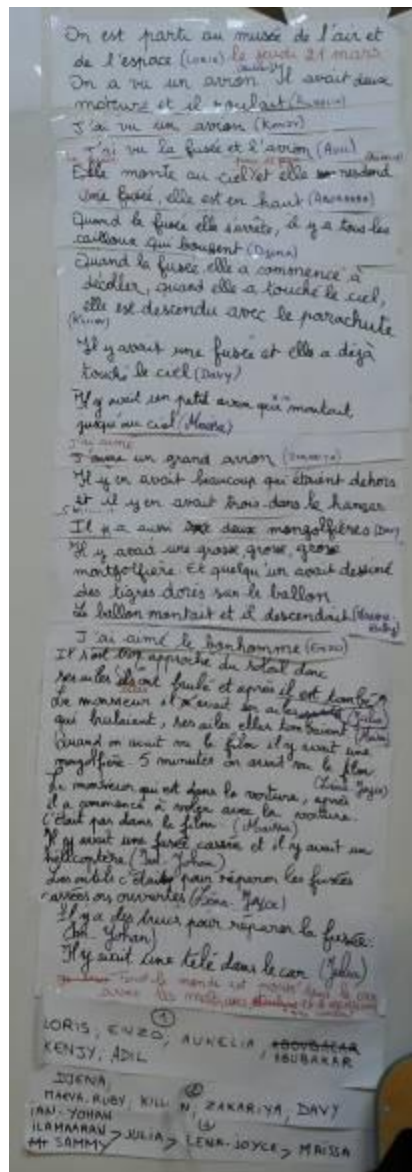 On est parti au musée de l'air et
de l'espace (LORIS) le jeudi 21 mars
On a vu un avion. Il avait deux
moteurs et il roulait
J'ai vu un avion (KENJY)
J'ai vu la fusée et l'avion (ADIL)
Elle monte au ciel et elle redescend
une fusée, elle est en haut
Quand la fusée elle s'arrête, il y a tous les
cailloux qui bougent (DJENA)
Quand la fusée elle a commencé à
décoller, quand elle a touché le ciel,
elle est descendu avec le parachute
Il y avait une fusée et elle a déjà
touché le ciel (DAVY)
Il y avait un petit avion qui montait
jusqu'au ciel
J'ai aimé
un grand avion
Il y en avait beaucoup qui étaient dehors
et il y en avait trois dans le hangar
Il y a aussi deux mongolfières (DAVY
Il y avait une grosse, grosse, grosse
montgolfière. Et quelqu'un avait dessiné
des tigres dorés sur le ballon
Le ballon montait et il descendait
J'ai aimé le bonhomme (ENZO)
Il s'est trop approché du soleil donc
ses ailes ont brulé et après il est tombé
Le monsieur il avait des ailes (Julia)
qui brulaient, ses ailes elles tombaient
Quand on avait vu le film il y avait une
mongolfière. 5 minutes on avait vu le film
(Léna-Joyce)
Le monsieur qui est dans la voiture, après
il a commencé à voler avec la voiture.
C'était pas dans le film (Maïssa)
Il y avait une fusée cassée et il y avait un
hélicoptère (Ian-Yohan)
Les outils c'était pour réparer les fusées
cassées ou ouvertes (Léna-Joyce)
Il y a des trucs pour réparer la fusée.
(Ian-Yohan)
Il y avait une télé dans le car (Julia)
Tout le monde est dans le car
avec les
1
LORIS, ENZO, AURELIA,
KENJY, ADIL ABUBAKAR
DJENA,
MAEVA-RUBY, KILLIAN, ZAKARIYA, DAVY
IAN-YOHAN
ILAMAARAN JULIA, LENA-JOYCE, MAISSA
SAMMY